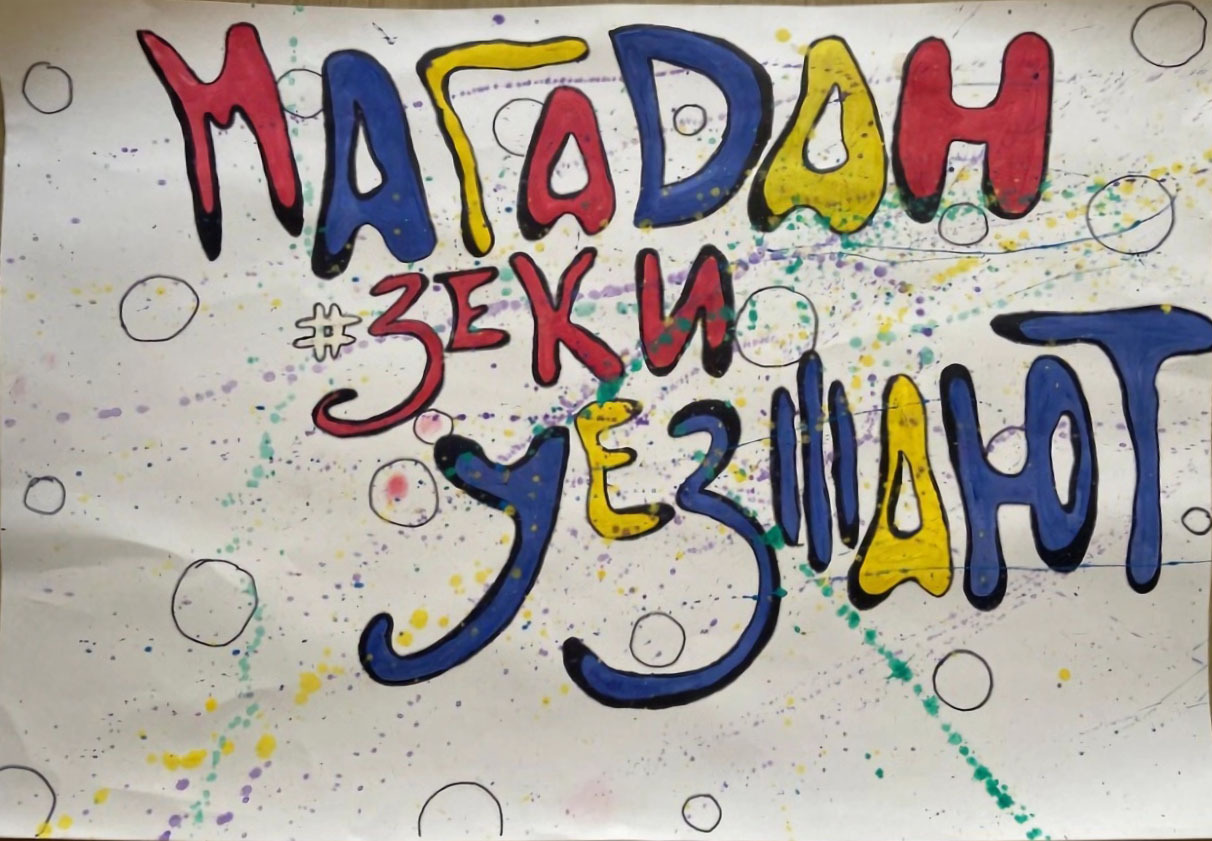 МАГАДАН
#ЗЕКИ
УЕЗЖАЮТ